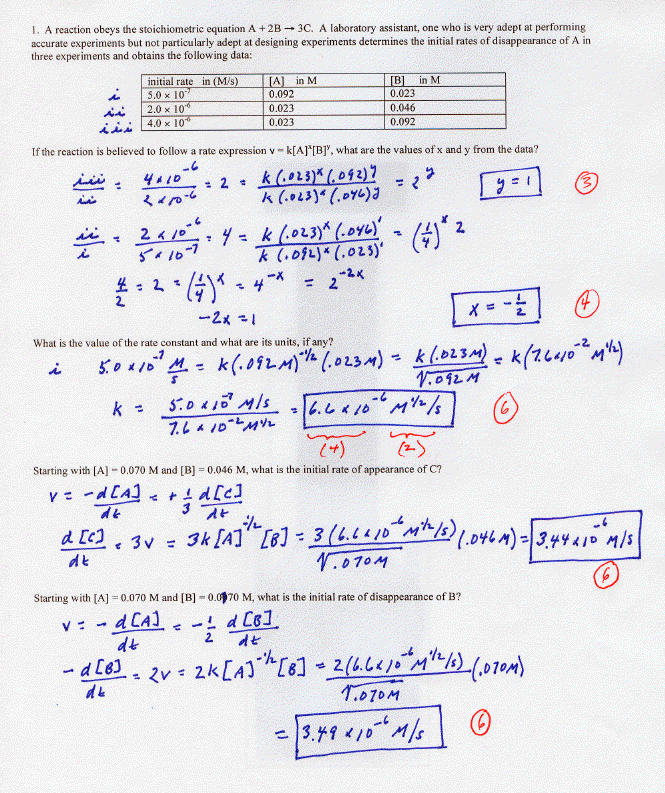 1. A reaction obeys the stoichiometric equation A + 2B → 3C. A laboratory assistant, one who is very adept at performing
accurate experiments but not particularly adept at designing experiments determines the initial rates of disappearance of A in
three experiments and obtains the following data:
initial rate in (M/s) [A] in M [B] in M
i 5.0 × 10⁻⁷ 0.092 0.023
ii 2.0 × 10⁻⁶ 0.023 0.046
iii 4.0 × 10⁻⁶ 0.023 0.092
If the reaction is believed to follow a rate expression v = k[A]ˣ[B]ʸ, what are the values of x and y from the data?
iii/ii = 4×10⁻⁶/2×10⁻⁶ = 2 = k(.023)ˣ(.092)ʸ/k(.023)ˣ(.046)ʸ = 2ʸ y = 1 3
ii/i = 2×10⁻⁶/5×10⁻⁷ = 4 = k(.023)ˣ(.046)¹/k(.092)ˣ(.023)¹ = (1/4)ˣ 2
4/2 = 2 = (1/4)ˣ = 4⁻ˣ = 2⁻²ˣ
-2x = 1 x = -1/2 4
What is the value of the rate constant and what are its units, if any?
i 5.0 × 10⁻⁷ M/s = k(.092M)⁻¹/²(.023M) = k(.023M)/√.092M = k(7.6×10⁻² M¹/²)
k = 5.0×10⁻⁷ M/s / 7.6×10⁻² M¹/² = 6.6×10⁻⁶ M¹/²/s 6
(4) (2)
Starting with [A] = 0.070 M and [B] = 0.046 M, what is the initial rate of appearance of C?
v = -d[A]/dt = +1/3 d[C]/dt
d[C]/dt = 3v = 3k[A]⁻¹/²[B] = 3(6.6×10⁻⁶ M¹/²/s)/√.070M (.046M) = 3.44×10⁻⁶ M/s
6
Starting with [A] = 0.070 M and [B] = 0.070 M, what is the initial rate of disappearance of B?
v = -d[A]/dt = -1/2 d[B]/dt
-d[B]/dt = 2v = 2k[A]⁻¹/²[B] = 2(6.6×10⁻⁶ M¹/²/s)/√.070M (.070M)
= 3.49×10⁻⁶ M/s 6